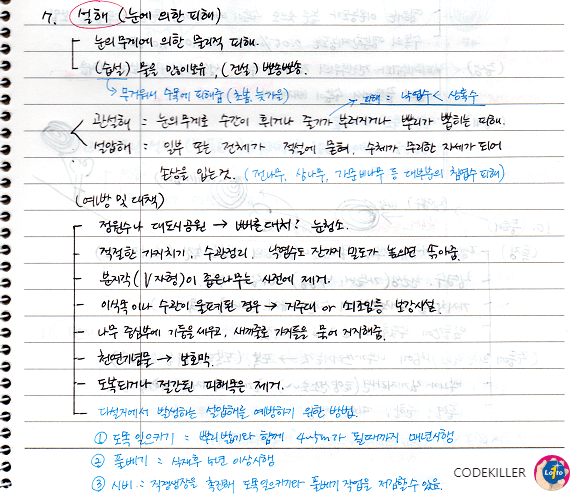 7. 설해 (눈에 의한 피해)
눈의 무게에 의한 물리적 피해.
(습설) 물을 많이보유, (건설) 뽀송뽀송.
무거워서 수목에 피해줌 (초봄, 늦가을)
피해 = 낙엽수 < 상록수
관설해 = 눈의 무게로 수간이 휘거나 줄기가 부러지거나 뿌리가 뽑히는 피해.
설압해 = 일부 또는 전체가 적설에 묻혀, 수체가 무리한 자세가 되어
손상을 입는 것. (전나무, 상나무, 가문비나무 등 대부분의 침엽수 피해)
(예방 및 대책)
정원수나 대도시공원 → 빠른대처? 눈청소.
적절한 가지치기, 수관정리, 낙엽수도 잔가지 밀도가 높으면 솎아줌.
분지각 (V자형)이 좁은나무는 사전에 제거.
이식목이나 수관이 울폐된 경우 → 지주대 or 쇠조임등 보강시설.
나무 중심부에 기둥을 세우고, 새끼줄로 가지들을 묶어 지지해줌.
천연기념물 → 보호막.
도복되거나 절간된 피해목은 제거.
다설지에서 발생하는 설압해를 예방하기 위한 방법.
① 도목 일으키기 = 뿌리밟이와 함께 4~5m가 될때까지 매년시행
② 풀베기 = 식재후 5년 이상시행
③ 시비 = 직경생장을 촉진해 도목일으키기와 풀베기 작업을 저감할수 있음.
CODEKILLER
Lotto